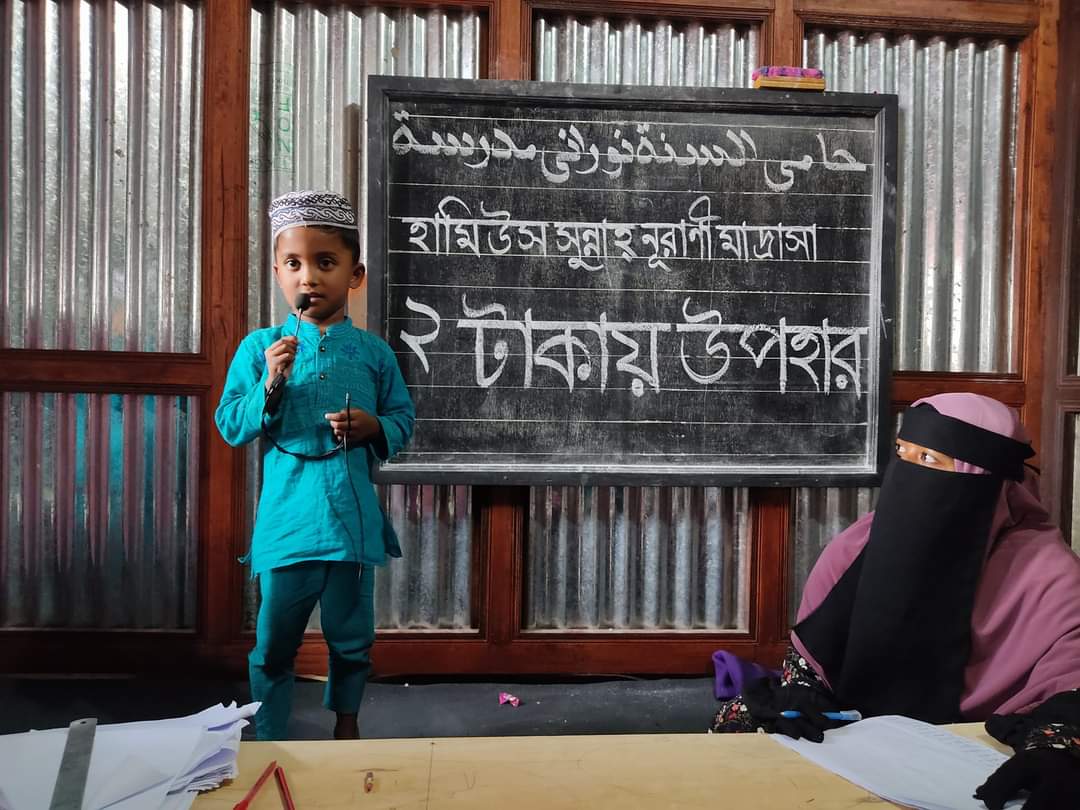 حامى السنة نورانى مدرسة
হামিউস সুন্নাহ নূরাণী মাদ্রাসা
২ টাকায় উপহার